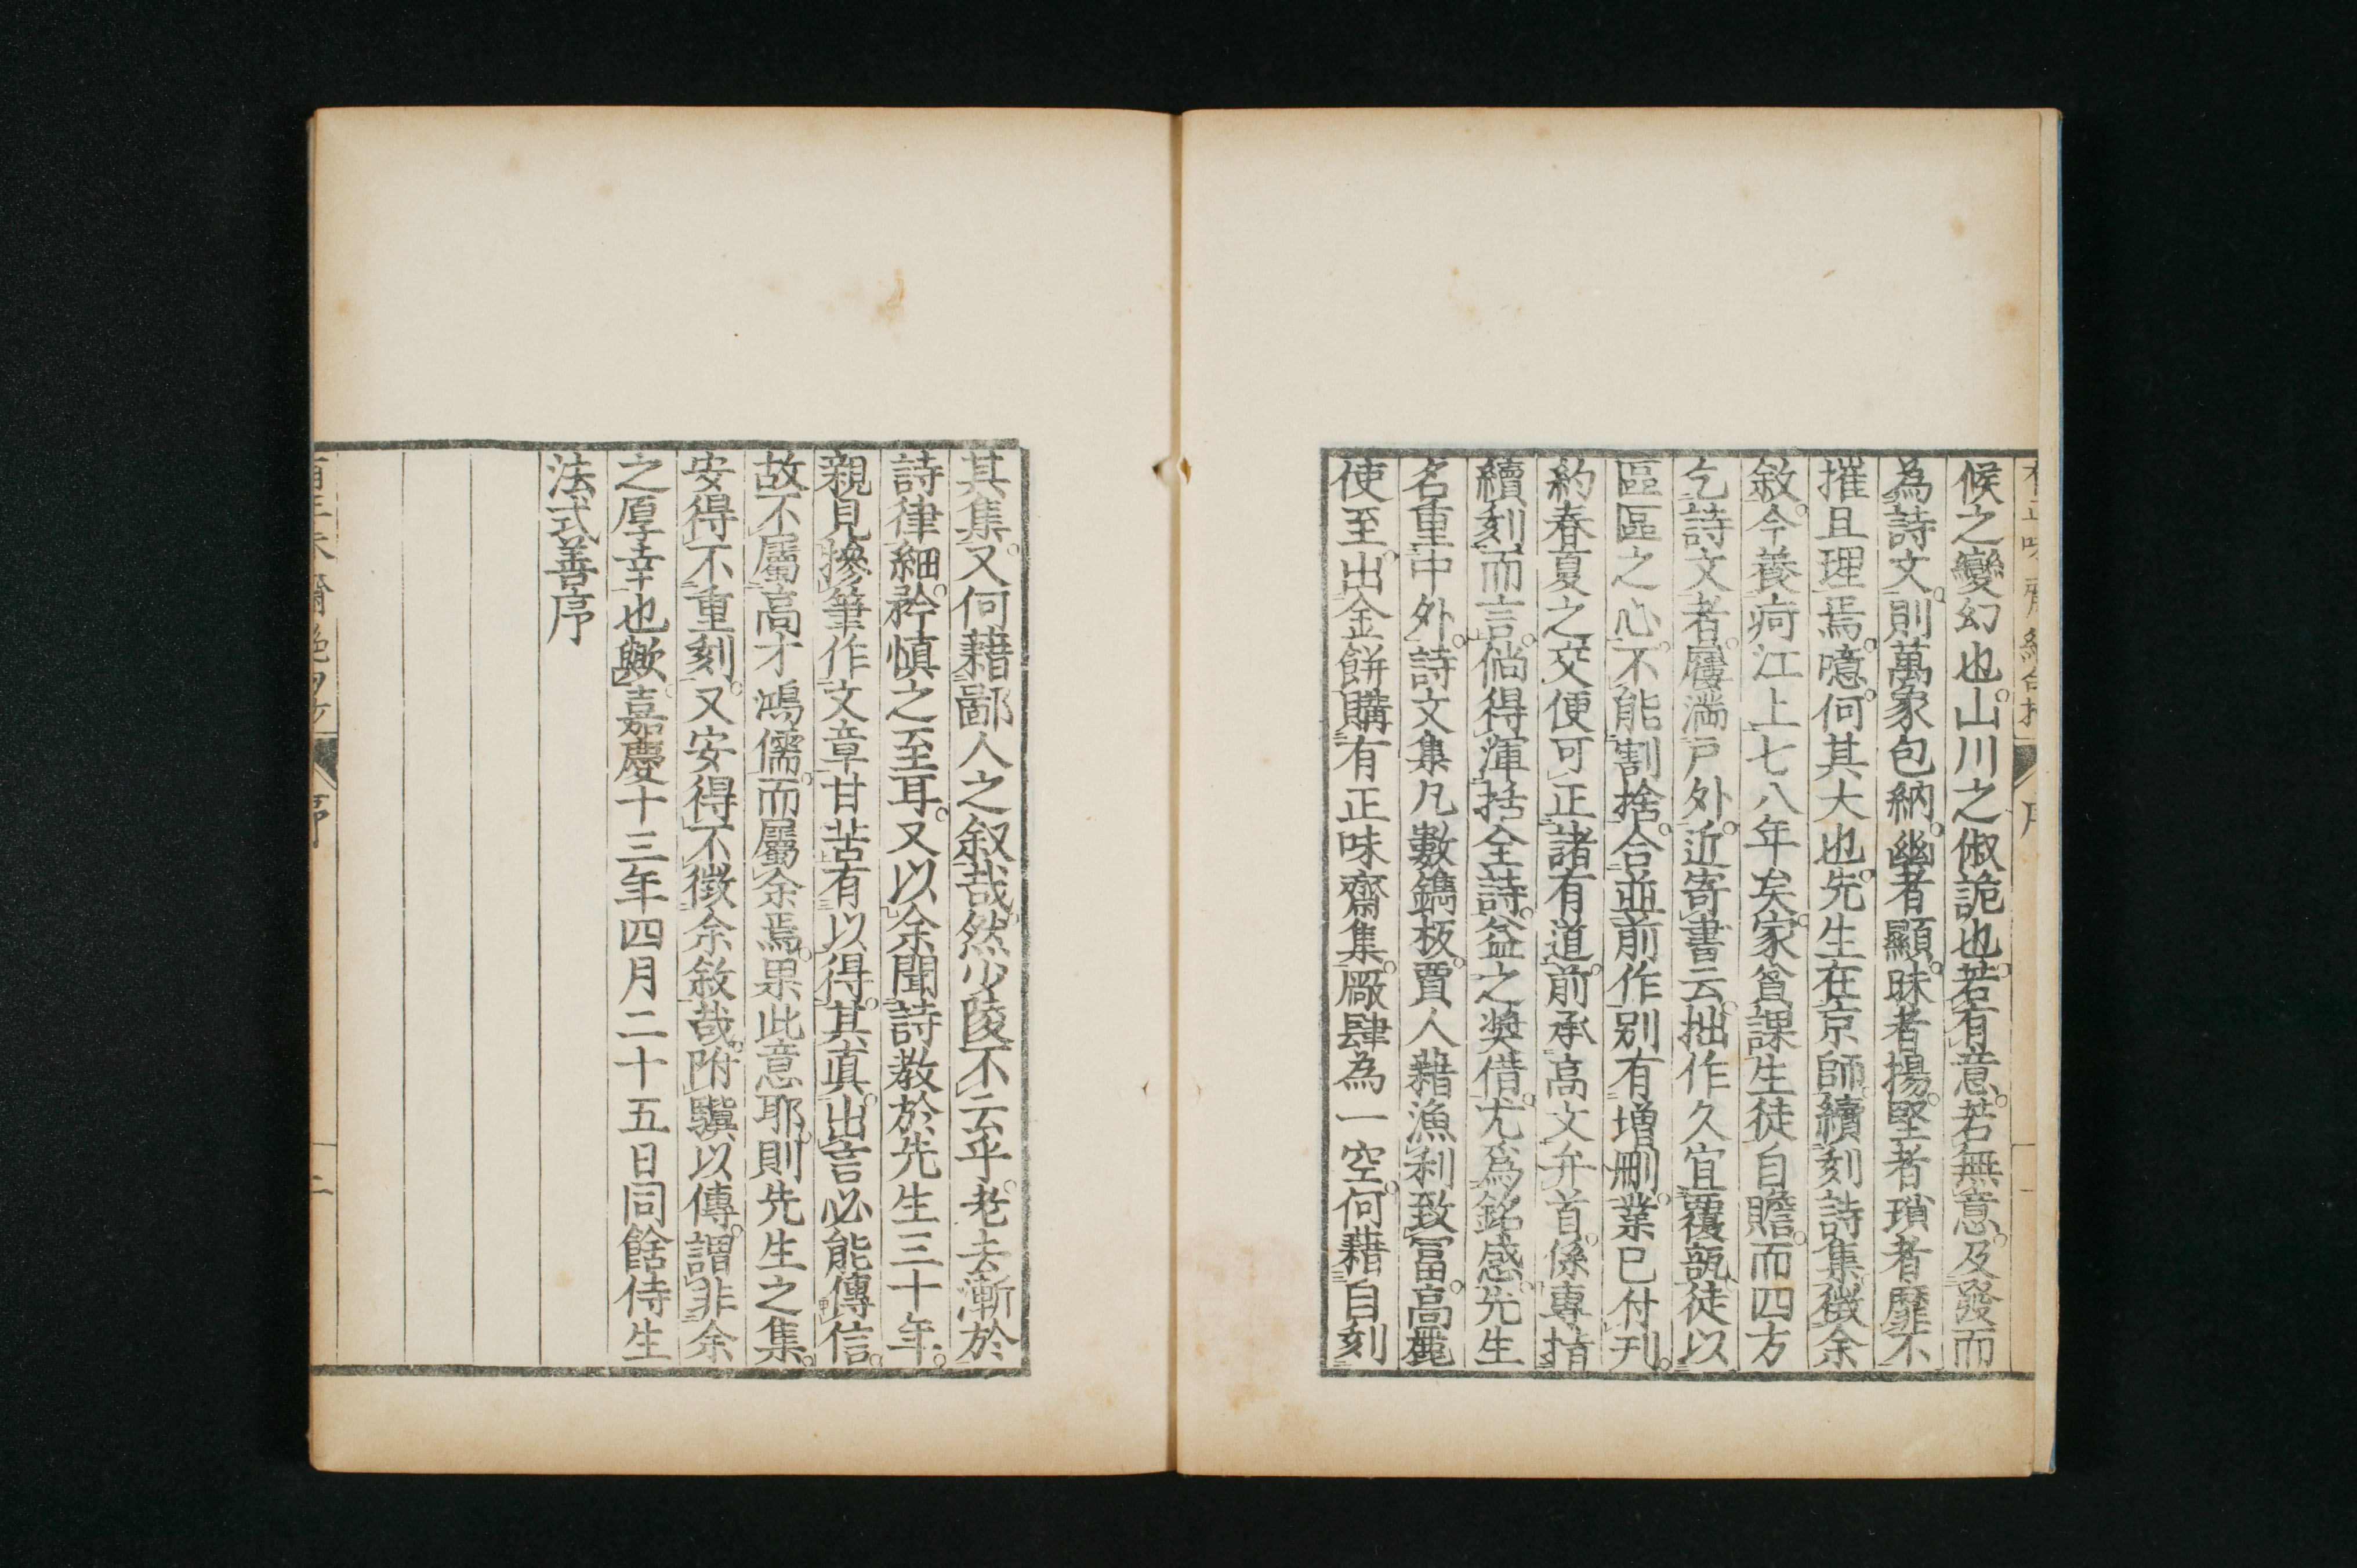 候之變幻也。山川之俶詭也。若有意。若無意。及發而
為詩文。則萬象包納。幽者顯。昧者揚。堅者瑣者靡不
摧且理焉。噫。何其大也。先生在京師。續刻詩集。徵余
敘。今養疴江上七八年矣。家貧課生徒自贍。而四方
乞詩文者。屨滿戶外。近寄書云。拙作久宜覆瓿。徒以
區區之心。不能割捨。合並前作。別有增刪。業已付刊。
約春夏之交。便可正諸有道。前承高文弁首。係專指
續刻而言。倘得渾括全詩。益之奬借。尤為銘感。先生
名重中外。詩文集凡數鐫板。賈人藉漁利致富。高麗
使至。出金餅購有正味齋集。厰肆為一空。何藉自刻
其集。又何藉鄙人之叙哉。然少陵不云乎。老去漸於
詩律細。矜慎之至耳。又以余聞詩教於先生三十年。
親見摻筆作文章。甘苦有以得其真。出言必能傳信。
故不屬高才鴻儒。而屬余焉。果此意耶。則先生之集。
安得不重刻。又安得不徵余敘哉。附驥以傳。謂非余
之厚幸也歟。嘉慶十三年四月二十五日同館侍生
法式善序
序
二